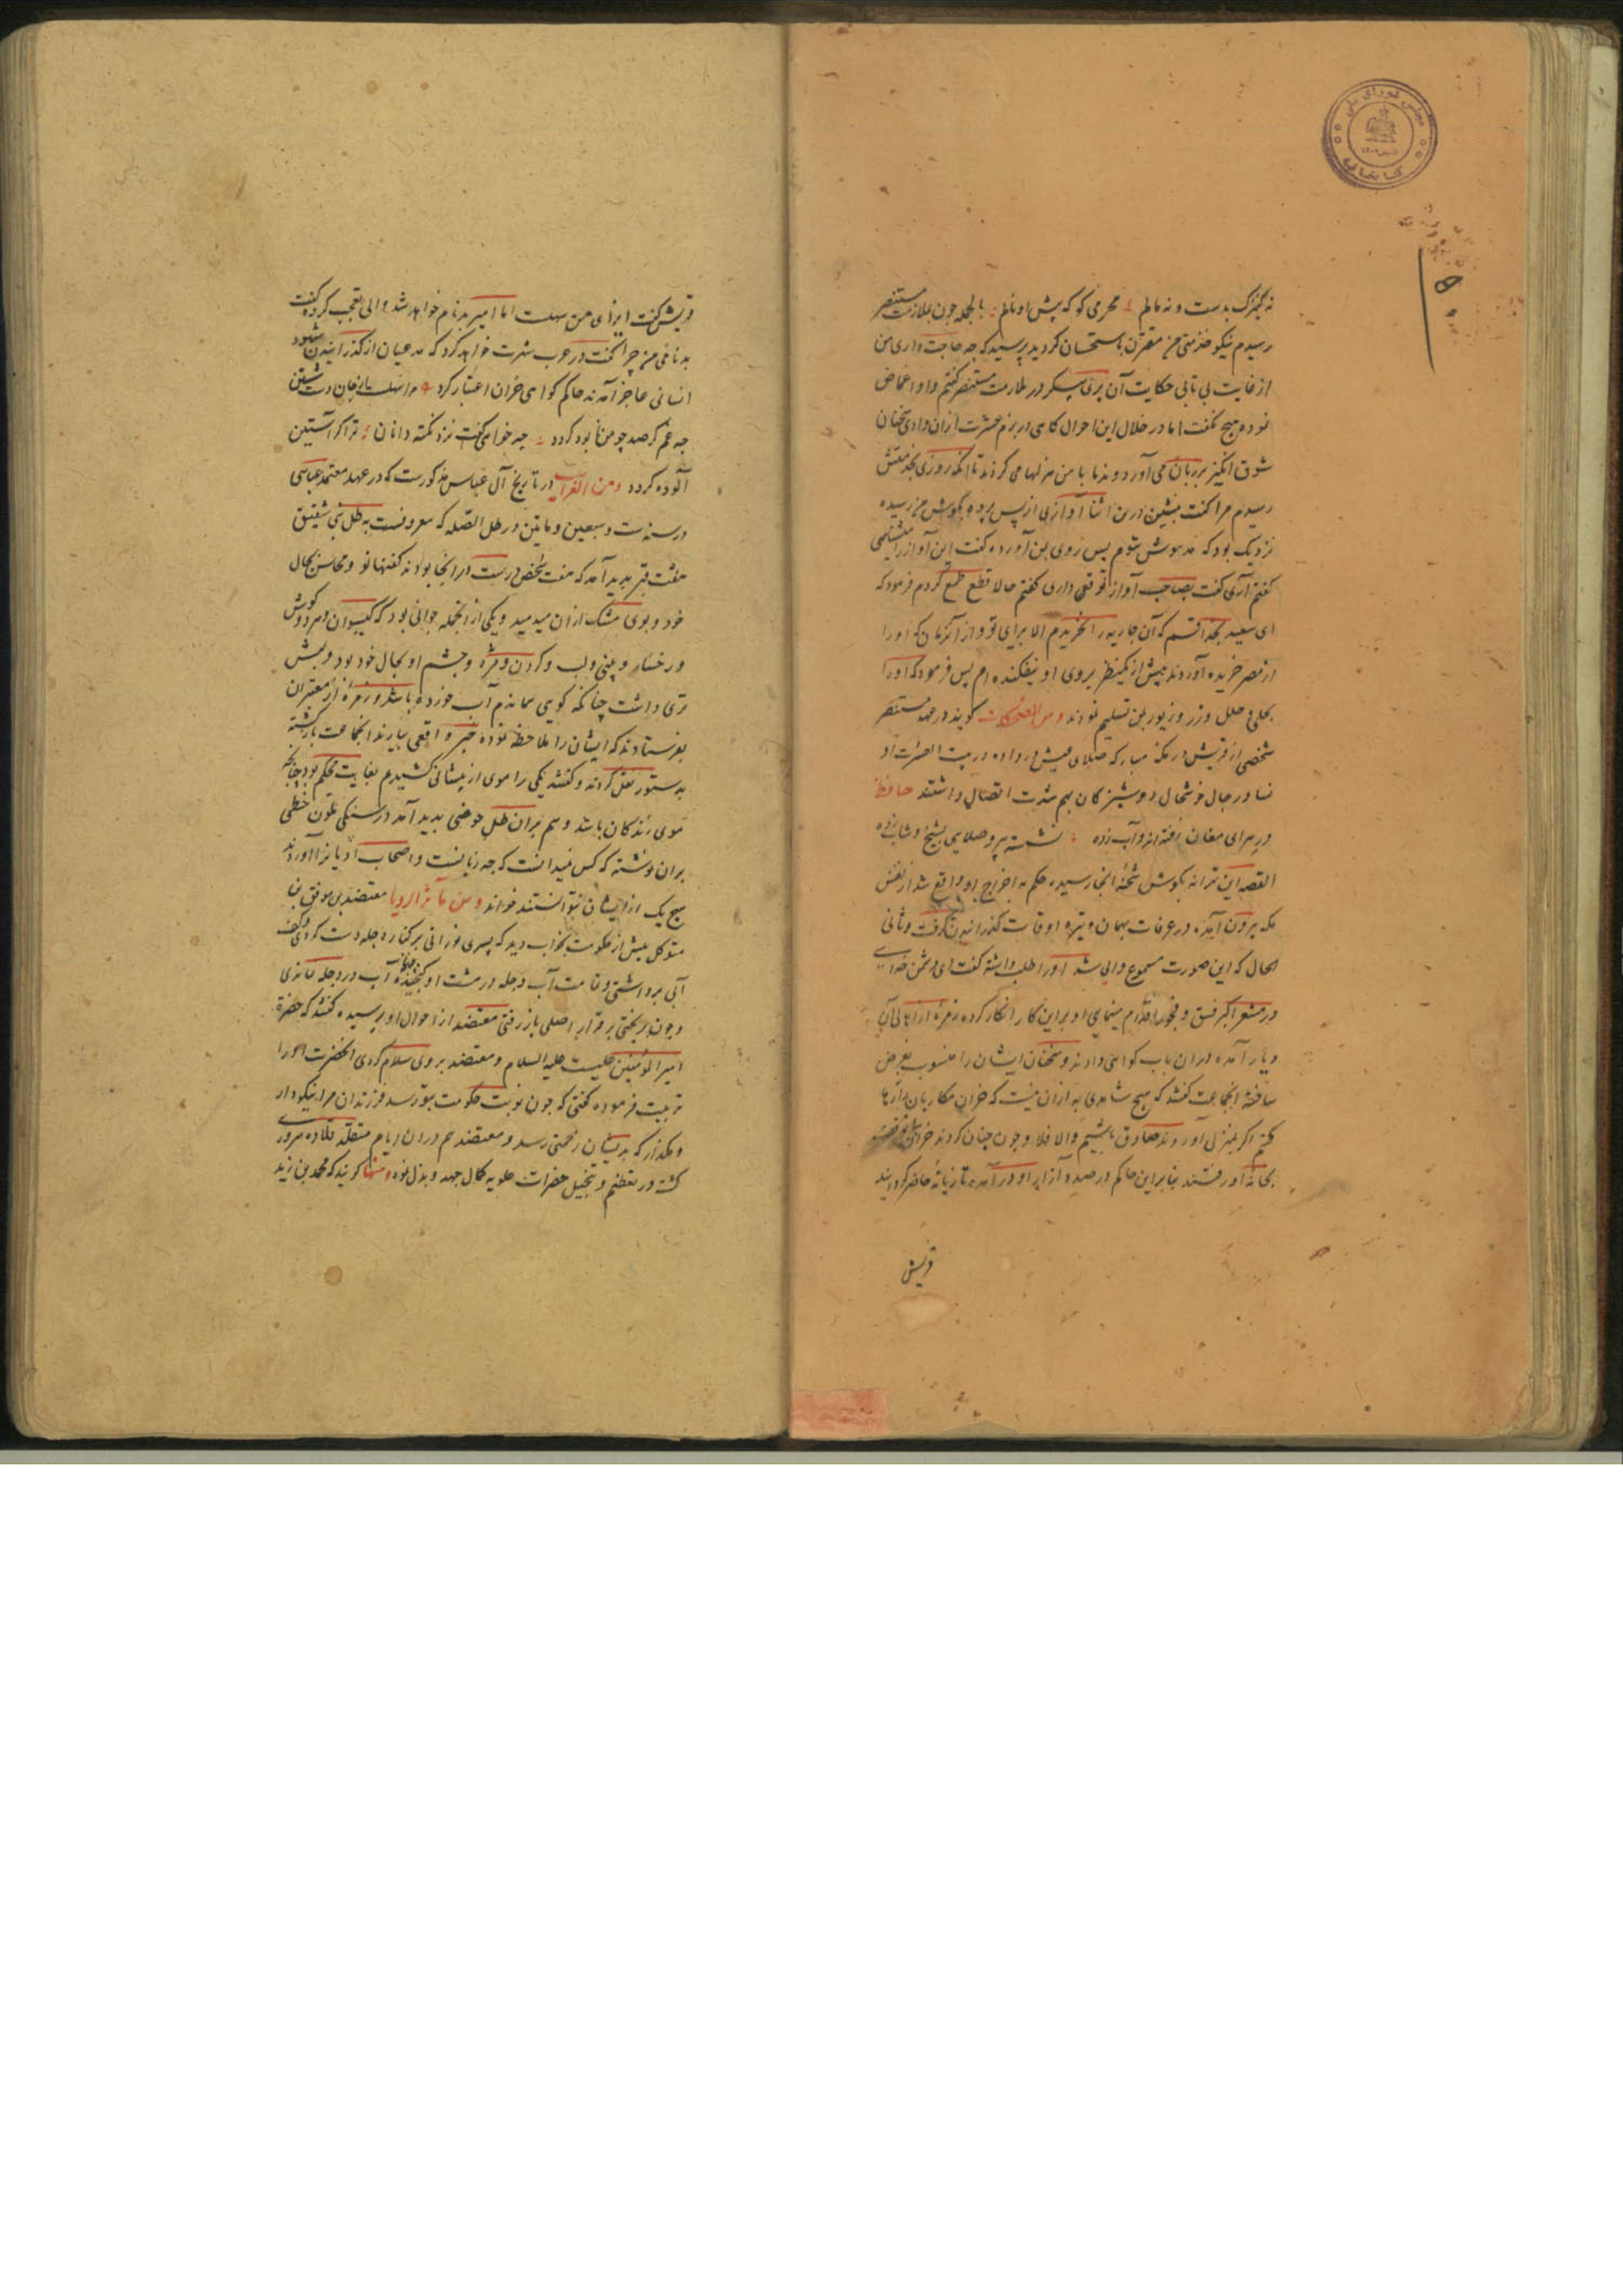 مجلس شورای ملی
کتابخانه
نه کنیزک بدست و نه مالم محرمی کو که پیش او نالم بالجمله چون بملازمت مستنصر
رسیدم نیکو خدمتی من مقرون باستحسان گردید پرسید که چه حاجت داری من
از غایت بی تابی حکایت آن پری پیکر در ملازمت مستنصر گفتم و او اغماض
نموده هیچ نگفت اما در خلال این احوال گاهی در بزم عشرت ازان وادی سخنان
شوق انگیز بر زبان می آورد و ندما با من هزلها می کردند تا آنکه روزی بخدمتش
رسیدم مرا گفت بنشین درین اثنا آوازی از پس پرده بگوش من رسیده
نزدیک بود که مدهوش شوم پس روی بمن آورده گفت این آواز را میشناسی
گفتم آری گفت بصاحب آواز توقعی داری گفتم حالا قطع طمع کردم فرمود که
ای سعید بخدا قسم که آن جاریه را نخریدم الا برای تو و از آنزمان که او را
از مصر خریده آوردند بیش از یکنظر بروی او نیفکنده ام پس فرمود که او را
بحلی و حلل و زر و زیور بمن تسلیم نمودند و من المضحکات گویند در عهد مستنصر
شخصی از قریش در مکه مبارکه صلای عیش در داده در بیت العشرت او
نسا و رجال خوشحال و دوشیزگان بهم شدت اتصال داشتند حافظ
در سرای مغان رفته اند و آب زده نشسته پیر و صلایی بشیخ و شاب زده
القصه این ترانه بگوش شحنه انجا رسیده حکم به اخراج او واقع شد از نفس
مکه بیرون آمده در عرفات بهمان وتیره اوقات گذرانیدن گرفت و ثانی
الحال که این صورت مسموع والی شد او را طلب داشته گفت ای دشمن خدای
در مشعر اکبر فسق و فجور اقدام مینمایی او براین کار انکار کرده زمره از اهالی آن
دیار آمده دران باب گواهی دادند و سخنان ایشان را منسوب بغرض
ساخته انجماعت گفتند که هیچ شاهدی به ازان نیست که خران مکاریان را رها
کنیم اگر بمنزل او روند صادق باشیم والا فلا و چون چنان کردند خران
بخانه او رفتند بنابراین حاکم در صدد آزار او در آمده تازیانه حاضر گردانید
قریش
قریش گفت ایذای من سهلست اما امیر بدنام خواهد شد والی تعجب کرده گفت
بدنامی من چرا گفت در عرب شهرت خواهد کرد که مدعیان از گذرانیدن شهود
انسانی عاجز آمدند حاکم گواهی خران اعتبار کرد مرا سهلست از جان دست شستن
چه غم گر صد چو من نابود گردد چه خواهی گفت نزد نکته دانان ترا گر آستین
آلوده گردد و من الغرایب در تاریخ آل عباس مذکورست که در عهد معتمد عباسی
در سنه ست و سبعین و ماتین در طل الصله که معروفست به طل بنی شقیق
هفت قبر پدید آمد که هفت شخص درست در انجا بودند کفنها نو و محاسن بحال
خود و بوی مشک ازان میدمید و یکی از انجمله جوانی بود که گیسوان و مرد و گوش
و رخسار و بینی و لب و گردن و مژه و چشم او بحال خود بود و لبش
تری داشت چنانکه گویی همان دم آب خورده باشد و زمره از معتبران
بفرستادند که ایشان را ملاحظه نموده خبر واقعی بیارند انجماعت بازگشته
بدستور نقل کردند و گفتند یکی را موی از پیشانی کشیدم بغایت محکم بود چنانچه
موی زندگان باشد و هم بران طل حوضی پدید آمد در سنگی ملون خطی
بران نوشته که کس نمیدانست که چه زبانست و اصحاب ادیانرا آوردند
هیچ یک از ایشان نتوانستند خواند و من مآثر الرویا معتضد بن موفق بن
متوکل پیش از حکومت بخواب دید که پیری نورانی بر کناره دجله دست کردی و کف
آبی برداشتی و تمامت آب دجله در مشت او گنجیده آب در دجله نماندی
و چون بریختی بر قرار اصلی باز رفتی معتضد از احوال او پرسیده گفتند که حضرة
امیر المؤمنین علیست علیه السلام و معتضد بروی سلام کردی انحضرت او را
تربیت فرموده گفتی که چون نوبت حکومت بتو رسد فرزندان مرا نیکو دار
و مگذار که بدیشان زحمتی رسد و معتضد هم دران ایام متقلد قلاده سروری
گشته در تعظیم و تبجیل حضرات علویه کمال جهد و بذل نموده و منها گویند که محمد بن زید